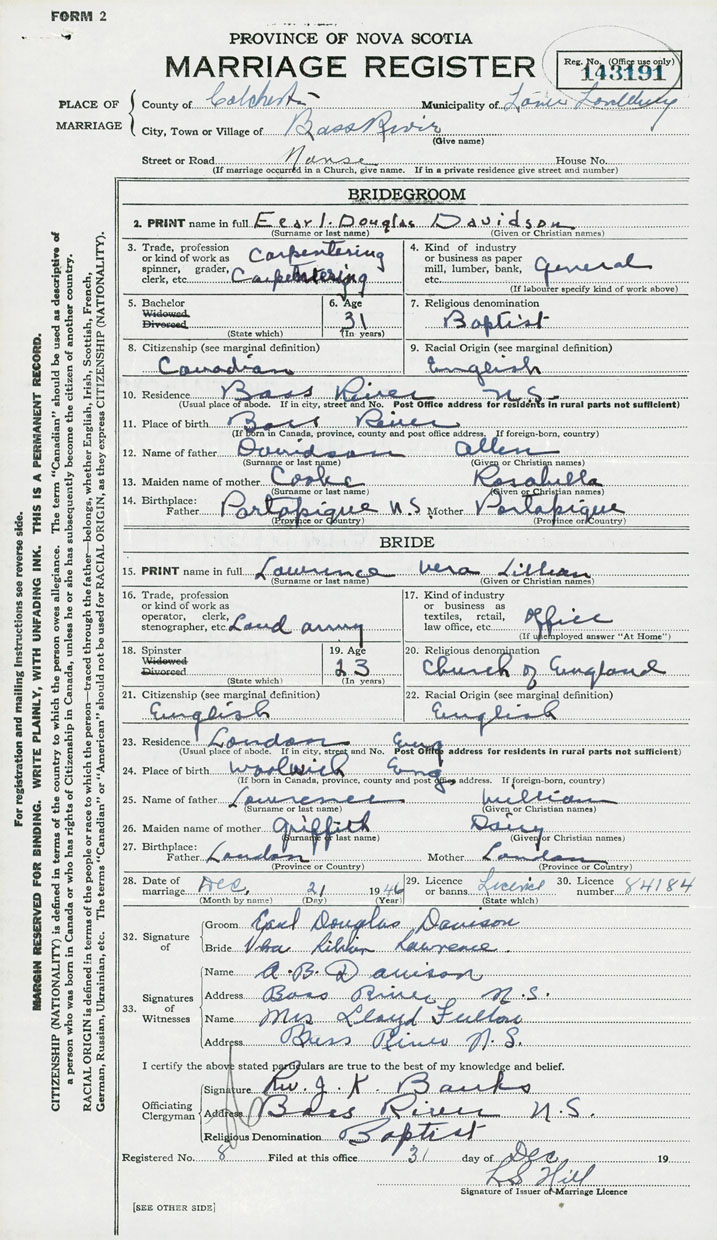 FORM 2
PROVINCE OF NOVA SCOTIA
MARRIAGE REGISTER
Reg. No. (Office use only)
143191
PLACE OF MARRIAGE
County of Colchester Municipality of Lower Londonderry
City, Town or Village of Bass River
(Give name)
Street or Road Manse House No.
(If marriage occurred in a Church, give name. If in a private residence give street and number)
BRIDEGROOM
2. PRINT name in full Earl Douglas Davidson
(Surname or last name) (Given or Christian names)
3. Trade, profession or kind of work as spinner, grader, clerk, etc. Carpentering Carpentering
4. Kind of industry or business as paper mill, lumber, bank, etc. General
(If labourer specify kind of work above)
5. Bachelor Widowed Divorced (State which)
6. Age 31 (In years)
7. Religious denomination Baptist
8. Citizenship (see marginal definition) Canadian
9. Racial Origin (see marginal definition) English
10. Residence Bass River N.S.
(Usual place of abode. If in city, street and No. Post Office address for residents in rural parts not sufficient)
11. Place of birth Bass River
(If born in Canada, province, county and post office address. If foreign-born, country)
12. Name of father Davidson Allen
(Surname or last name) (Given or Christian names)
13. Maiden name of mother Cooke Rosabella
(Surname or last name) (Given or Christian names)
14. Birthplace: Father Portapique N.S. Mother Portapique
(Province or Country) (Province or Country)
BRIDE
15. PRINT name in full Lawrence Vera Lillian
(Surname or last name) (Given or Christian names)
16. Trade, profession or kind of work as operator, clerk, stenographer, etc. Land army
17. Kind of industry or business as textiles, retail, law office, etc. Office
(If unemployed answer "At Home")
18. Spinster Widowed Divorced (State which)
19. Age 23 (In years)
20. Religious denomination Church of England
21. Citizenship (see marginal definition) English
22. Racial Origin (see marginal definition) English
23. Residence London Eng
(Usual place of abode. If in city, street and No. Post Office address for residents in rural parts not sufficient)
24. Place of birth Woolwich Eng
(If born in Canada, province, county and post office address. If foreign-born, country)
25. Name of father Lawrence William
(Surname or last name) (Given or Christian names)
26. Maiden name of mother Griffith Daisy
(Surname or last name) (Given or Christian names)
27. Birthplace: Father London Mother London
(Province or Country) (Province or Country)
28. Date of marriage Dec, 21 1946
(Month by name) (Day) (Year)
29. Licence or banns Licence (State which)
30. Licence number 84184
32. Signature of
Groom Earl Douglas Davison
Bride Vera Lillian Lawrence
33. Signatures of Witnesses
Name A.B. Davison
Address Bass River N.S.
Name Mrs Lloyd Fulton
Address Bass River N.S.
I certify the above stated particulars are true to the best of my knowledge and belief.
Officiating Clergyman
Signature Rev. J. K. Banks
Address Bass River N.S.
Religious Denomination Baptist
Registered No. 8 Filed at this office 31 day of Dec 19
LS Hill
Signature of Issuer of Marriage Licence
[SEE OTHER SIDE]
For registration and mailing instructions see reverse side.
MARGIN RESERVED FOR BINDING. WRITE PLAINLY, WITH UNFADING INK. THIS IS A PERMANENT RECORD.
CITIZENSHIP (NATIONALITY) is defined in terms of the country to which the person owes allegiance. The term "Canadian" should be used as descriptive of
a person who was born in Canada or who has rights of Citizenship in Canada, unless he or she has subsequently become the citizen of another country.
RACIAL ORIGIN is defined in terms of the people or race to which the person—traced through the father—belongs, whether English, Irish, Scottish, French,
German, Russian, Ukrainian, etc. The terms "Canadian" or "American" should not be used for RACIAL ORIGIN, as they express CITIZENSHIP (NATIONALITY).